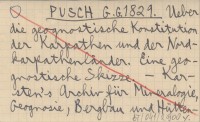 PUSCH G.G 1829. Ueber
die geognostische Konstitution
der Karpathen und der Nord-
karpathenländer. Eine geo-
gnostische Skizze. — Kar-
sten's Archiv für Mineralogie,
Geognosie, Bergbau und Hütten